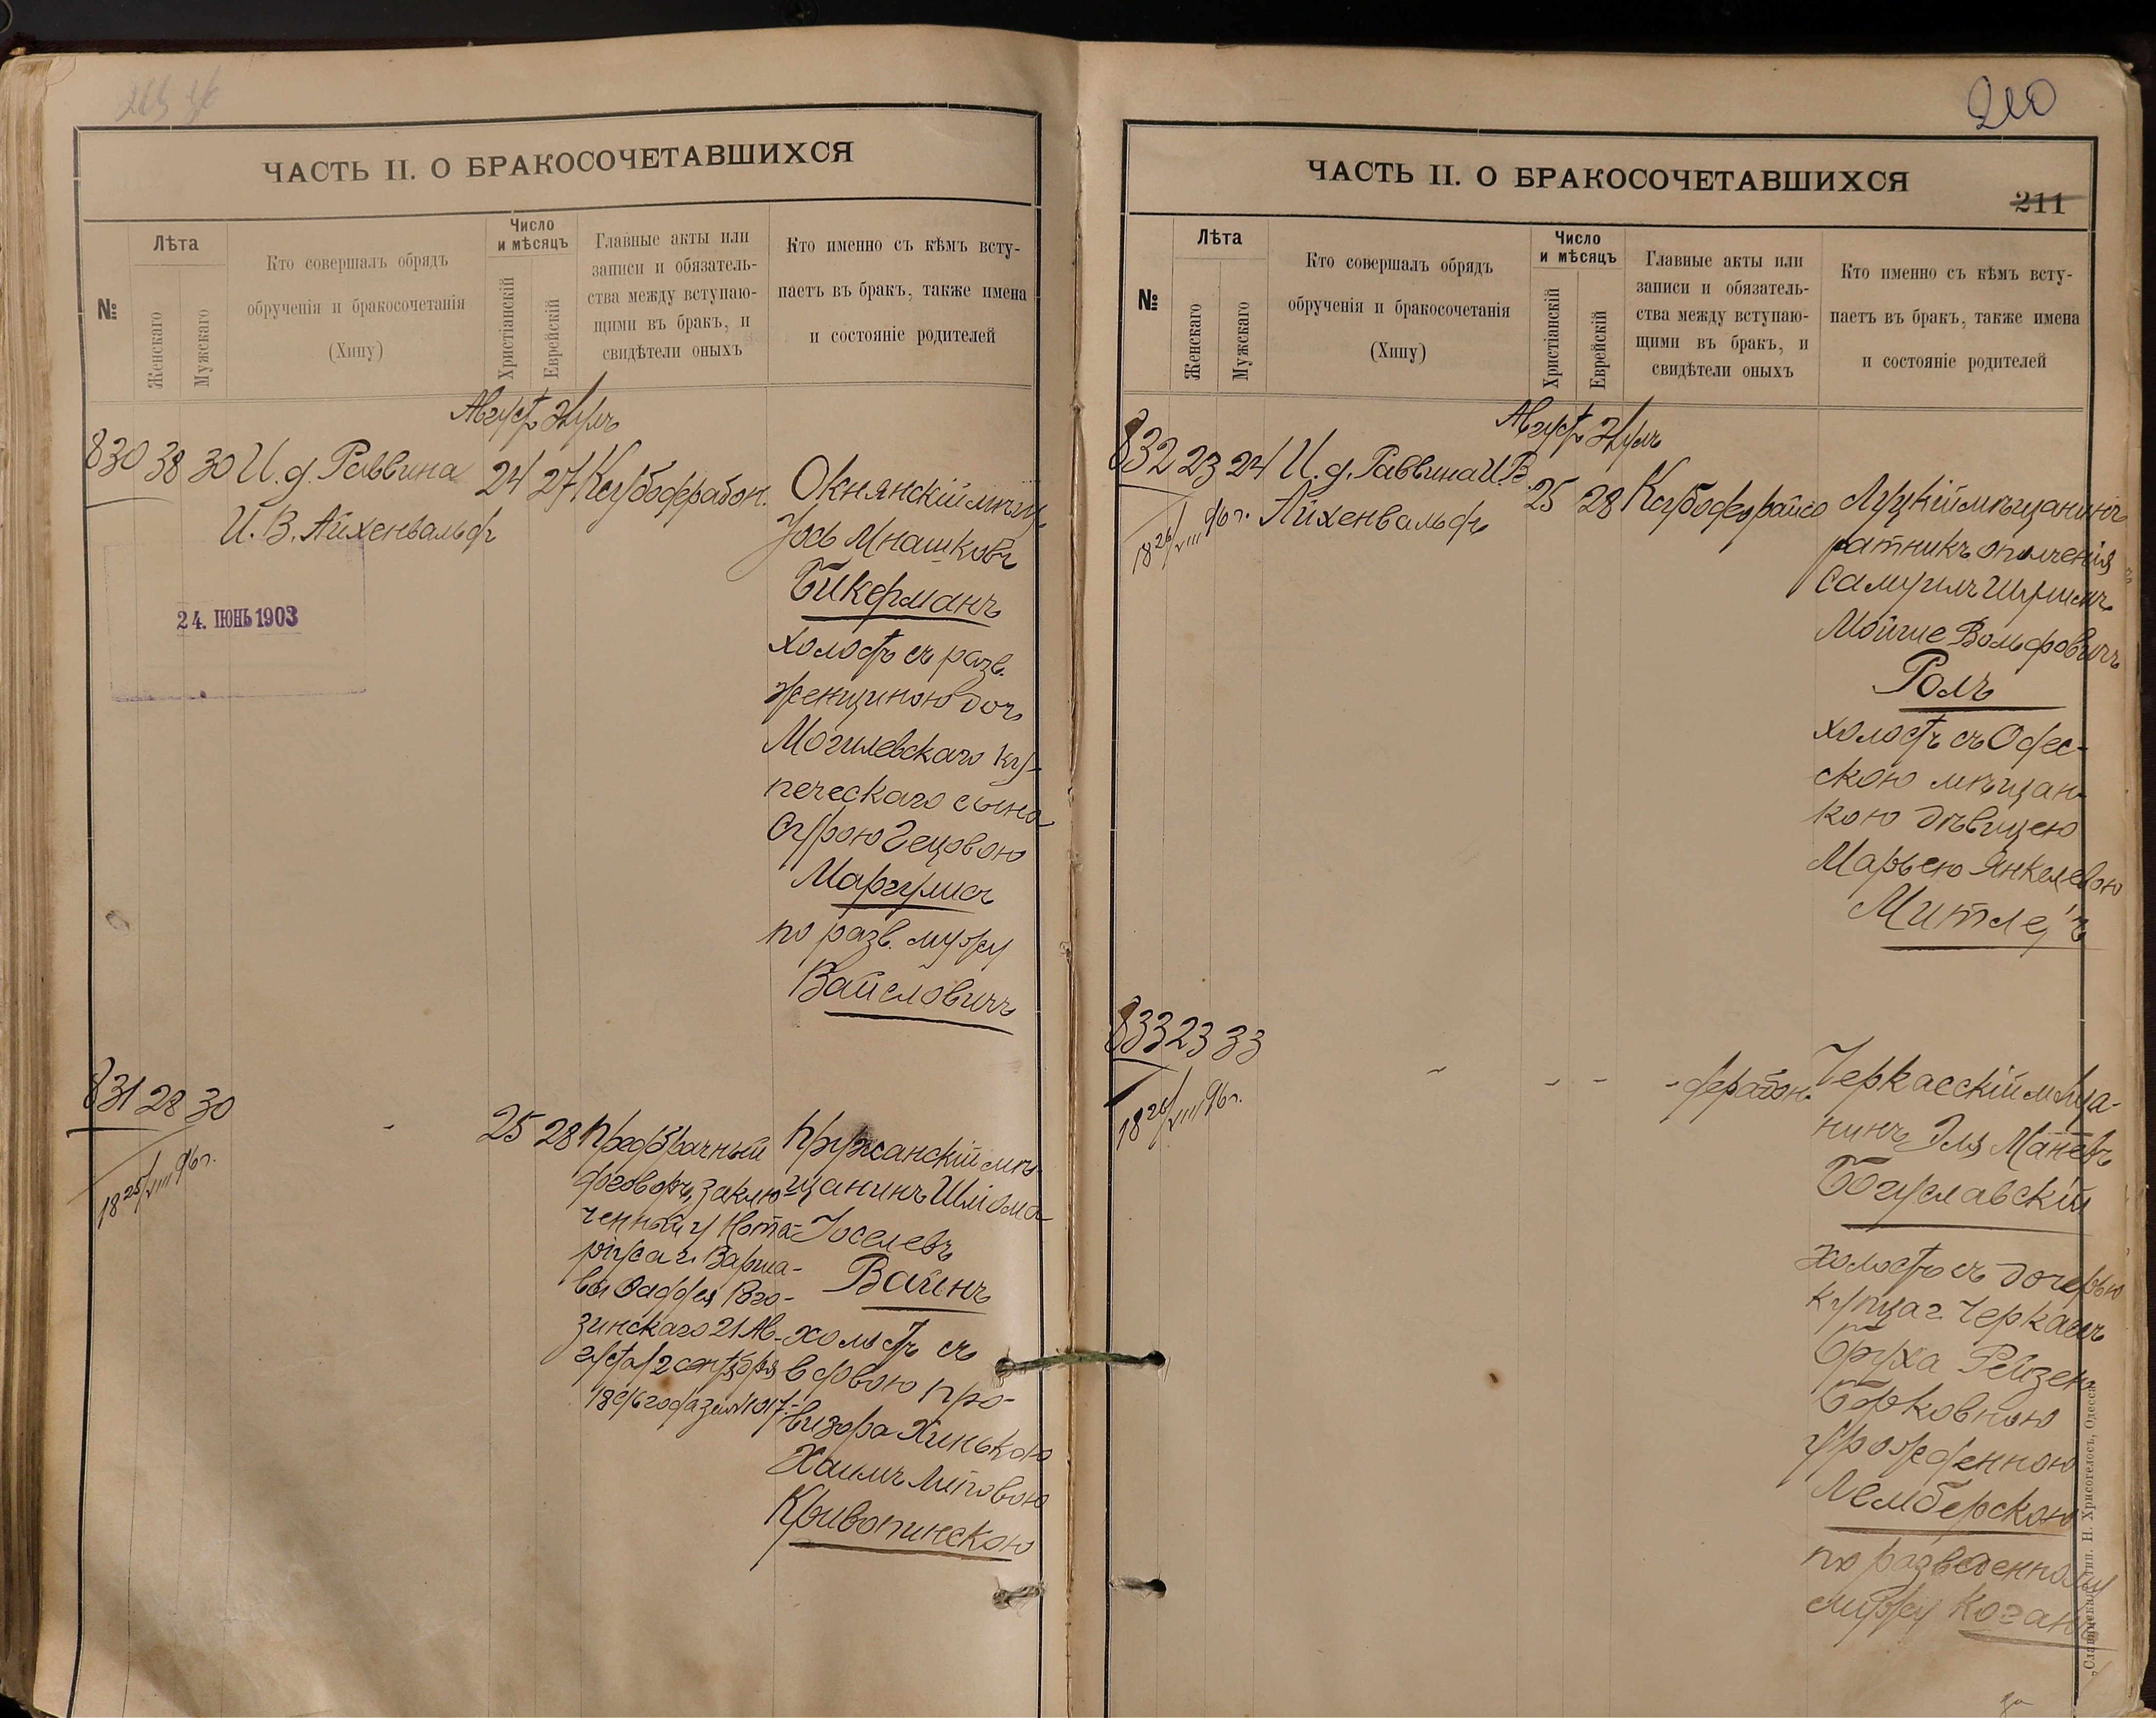 ЧАСТЬ II. О БРАКОСОЧЕТАВШИХСЯ
№
Лѣта
Женскаго
Мужскаго
Кто совершалъ обрядъ
обрученія и бракосочетанія
(Хипу)
Число
и мѣсяцъ
Христіанскій
Еврейскій
Главные акты или
записи и обязатель-
ства между вступаю-
щими въ бракъ, и
свидѣтели оныхъ
Кто именно съ кѣмъ всту-
паетъ въ бракъ, также имена
и состояніе родителей
Август
830 38 30 И. д. Раввина
И. В. Айхенвальдъ
24 27
24. ІЮНЬ 1903
Окнянскій мѣщ.
Іось Мнашковъ
Бикерманъ
холостъ съ разв.
женщиною доч.
Могилевскаго ку-
печескаго сына
Сурою Гецовою
Маргулисъ
по разв. мужу
Вайсловичъ
831 28 30
18 25/VIII 96 г.
-
25 28
Предбрачный
договоръ, заклю-
ченный у Нота-
ріуса г. Варша-
вы Фаддея
зинскаго 21 Ав-
густа/2 сентября
1896 года за № 1017.
Пружанскій мѣ-
щанинъ Шліома
Іоселевъ
Вайнъ
холостъ съ
вдовою про-
визора Хинькою
Хаимъ Литовою
Кривопинскою
210
ЧАСТЬ II. О БРАКОСОЧЕТАВШИХСЯ
211
№
Лѣта
Женскаго
Мужскаго
Кто совершалъ обрядъ
обрученія и бракосочетанія
(Хипу)
Число
и мѣсяцъ
Христіанскій
Еврейскій
Главные акты или
записи и обязатель-
ства между вступаю-
щими въ бракъ, и
свидѣтели оныхъ
Кто именно съ кѣмъ всту-
паетъ въ бракъ, также имена
и состояніе родителей
Август
832 23 24 И. д. Раввина И. В.
Айхенвальдъ
18 26/VIII 96 г.
25 28
Луцкій мѣщанинъ
ратникъ ополченія
Самуилъ Шулимъ
Мойше Вольфовичъ
Ролъ
холостъ съ Одес-
скою мѣщан-
кою дѣвицею
Марьею Янкелевою
833 23 33
18 26/VIII 96 г.
- - -
Черкасскій мѣща-
нинъ Эля Маневъ
Богуславскій
холостъ съ дочерью
купца г. Черкассъ
Бруха Рейзею
Берковною
урожденною
Лемберскою
по разведенному
мужу Коганъ
„Славянская" тип. Н. Хрисогелосъ, Одесса.